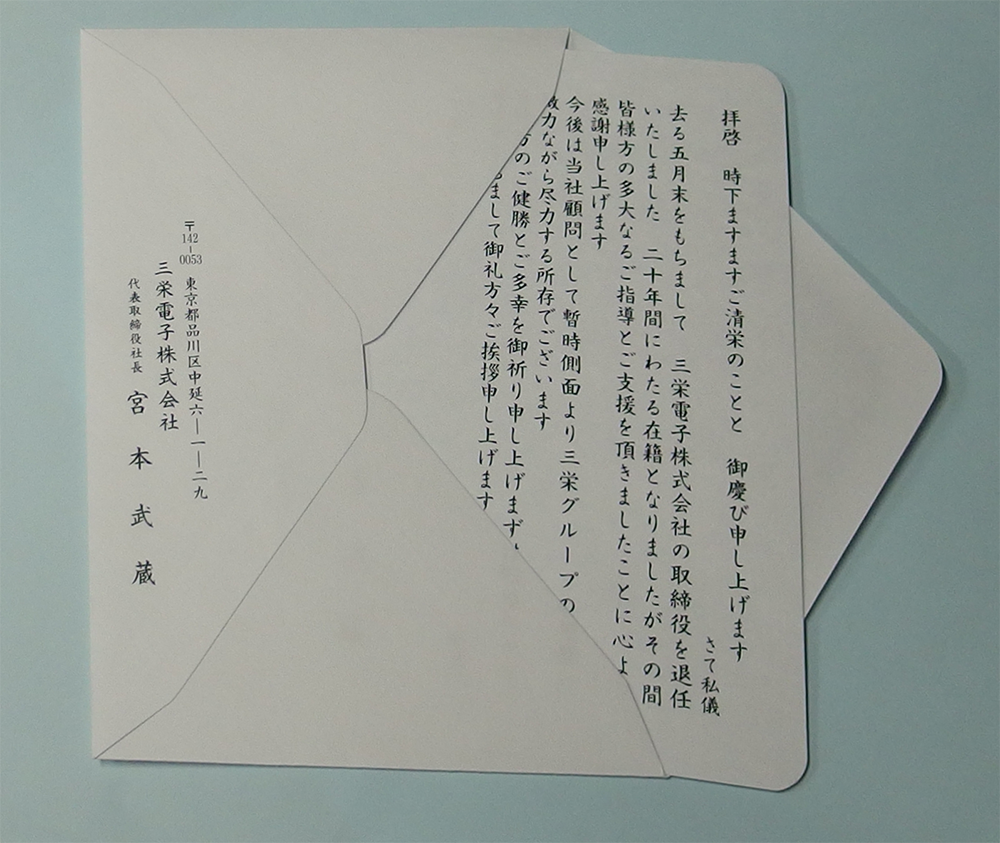 拝啓　時下ますますご清栄のことと　御慶び申し上げます
さて私儀
去る五月末をもちまして　三栄電子株式会社の取締役を退任
いたしました　二十年間にわたる在籍となりましたがその間
皆様方の多大なるご指導とご支援を頂きましたことに心よ
感謝申し上げます
今後は当社顧問として暫時側面より三栄グループの
力ながら尽力する所存でございます
のご健勝とご多幸を御祈り申し上げます
まして御礼方々ご挨拶申し上げます
〒142-0053　東京都品川区中延六―一―二九
三栄電子株式会社
代表取締役社長　宮本武蔵